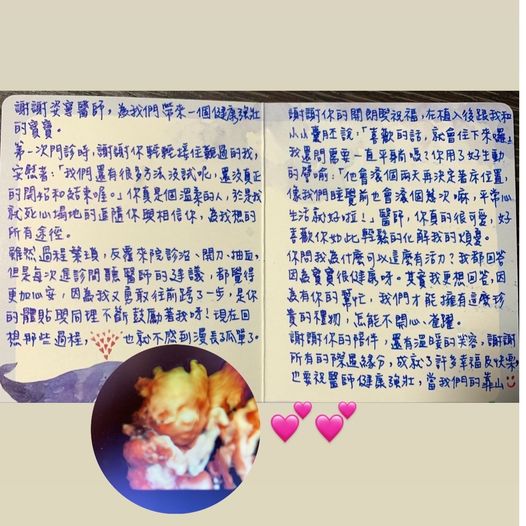 謝謝姿寧醫師，為我們帶來一個健康強壯
的寶寶。
第一次門診時，謝謝你輕輕接住難過的我，
安慰著：「我們還有很多方法沒試呢，還沒真正
的開始和結束喔。」你真是個溫柔的人，於是我
就死心塌地的追隨你與相信你，為我想的
所有途徑。
雖然過程繁瑣，反覆來院診治、開刀、抽血，
但是每次進診間聽醫師的建議，都覺得
更加心安，因為我又勇敢往前跨了一步，是你
的體貼與同理不斷鼓勵著我呀！現在回
想那些過程，也就不感到漫長孤單了。
謝謝你的開朗與祝福，在植入後跟我和
小小囊胚說，「喜歡的話，就會住下來囉」
我還問需要一直平躺嗎？你用了好生動
的譬喻：「他會滾個兩天再決定著床位置，
像我們睡覺前也會滾個幾次嘛，平常心
生活就好啦！」醫師，你真的很可愛，好
喜歡你如此輕鬆的化解我的煩憂。
你問我為什麼可以這麼有活力？我都回答
因為寶寶很健康呀。其實我更想回答，因
為有你的幫忙，我們才能擁有這麼珍
貴的禮物，怎能不開心、雀躍。
謝謝你的陪伴，還有溫暖的笑容，謝謝
所有的際遇緣分，成就了許多幸福及快樂，
也要祝醫師健康強壯，當我們的靠山